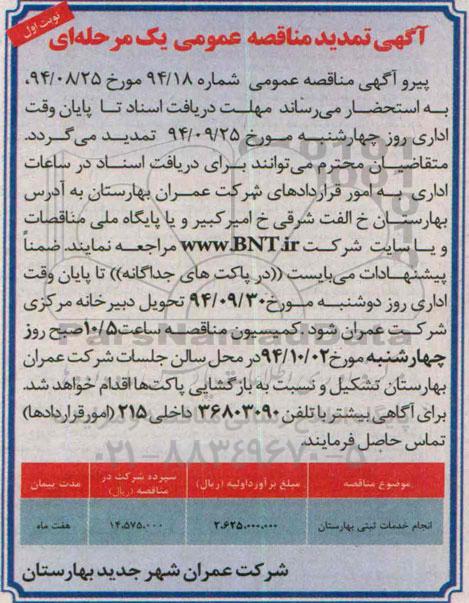 نوبت اول
آگهی تمدید مناقصه عمومی یک مرحله‌ای
پیرو آگهی مناقصه عمومی شماره ۹۴/۱۸ مورخ ۹۴/۰۸/۲۵،
به استحضار می‌رساند مهلت دریافت اسناد تا پایان وقت
اداری روز چهارشنبه مورخ ۹۴/۰۹/۲۵ تمدید می‌گردد.
متقاضیان محترم می‌توانند برای دریافت اسناد در ساعات
اداری به امور قراردادهای شرکت عمران بهارستان به آدرس
بهارستان خ الفت شرقی خ امیرکبیر و یا پایگاه ملی مناقصات
و یا سایت شرکت www.BNT.ir مراجعه نمایند. ضمناً
پیشنهادات می‌بایست ((در پاکت های جداگانه)) تا پایان وقت
اداری روز دوشنبه مورخ ۹۴/۰۹/۳۰ تحویل دبیرخانه مرکزی
شرکت عمران شود. کمیسیون مناقصه ساعت ۱۰/۵ صبح روز
چهارشنبه مورخ ۹۴/۱۰/۰۲ در محل سالن جلسات شرکت عمران
بهارستان تشکیل و نسبت به بازگشایی پاکت‌ها اقدام خواهد شد.
برای آگاهی بیشتر با تلفن ۳۶۸۰۳۰۹۰ داخلی ۲۱۵ (امور قراردادها)
تماس حاصل فرمایند.
موضوع مناقصه مبلغ برآورد اولیه (ریال) سپرده شرکت در مناقصه (ریال) مدت پیمان
انجام خدمات ثبتی بهارستان ۲.۶۲۵.۰۰۰.۰۰۰ ۱۴.۵۷۵.۰۰۰ هفت ماه
شرکت عمران شهر جدید بهارستان
ParsNamadData
۰۲۱-۸۸۳۴۹۶۷۰-۵